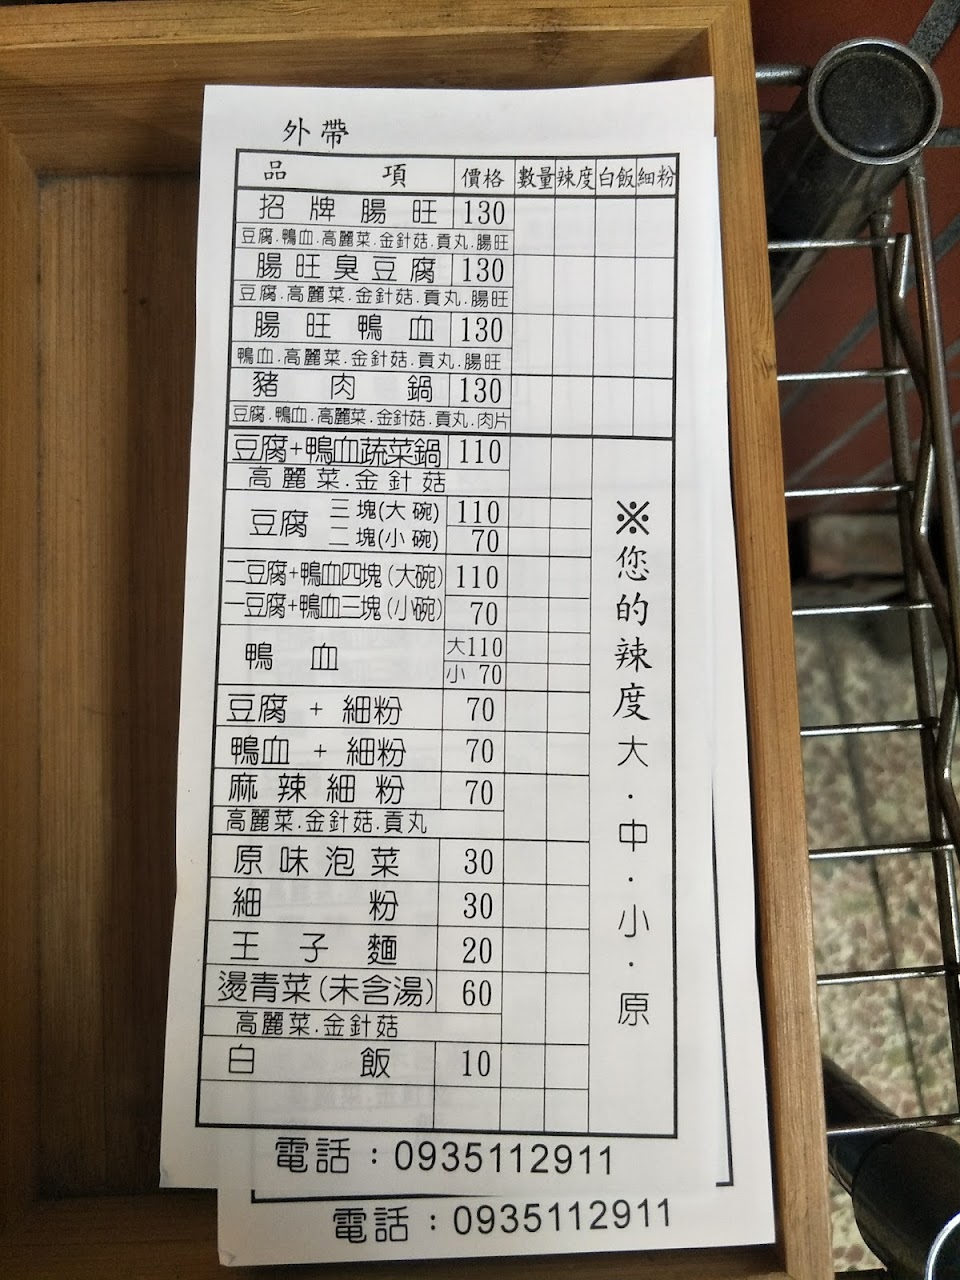 外帶
品 項 價格 數量 辣度 白飯 細粉
招牌腸旺 130
豆腐.鴨血.高麗菜.金針菇.貢丸.腸旺
腸旺臭豆腐 130
豆腐.高麗菜.金針菇.貢丸.腸旺
腸旺鴨血 130
鴨血.高麗菜.金針菇.貢丸.腸旺
豬肉鍋 130
豆腐.鴨血.高麗菜.金針菇.貢丸.肉片
豆腐+鴨血蔬菜鍋 110
高麗菜.金針菇
豆腐 三塊(大碗) 110
二塊(小碗) 70
二豆腐+鴨血四塊(大碗) 110
一豆腐+鴨血三塊(小碗) 70
鴨血 大110
小 70
豆腐 + 細粉 70
鴨血 + 細粉 70
麻辣細粉 70
高麗菜.金針菇.貢丸
原味泡菜 30
細粉 30
王子麵 20
燙青菜(未含湯) 60
高麗菜.金針菇
白飯 10
※您的辣度大.中.小.原
電話：0935112911
電話：0935112911